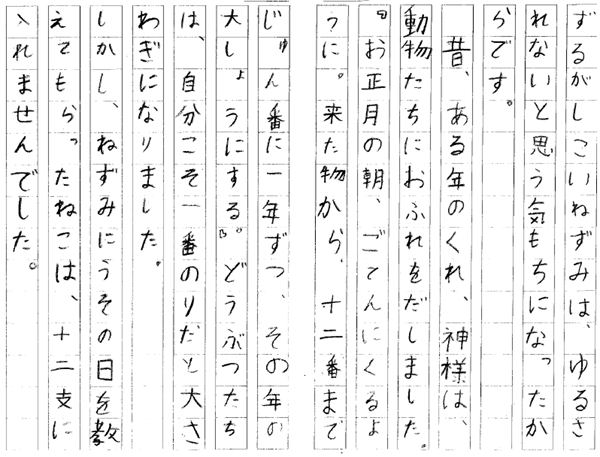 ずるがしこいねずみは、ゆるさ
れないと思う気もちになったか
らです。
昔、ある年のくれ、神様は、
動物たちにおふれをだしました。
『お正月の朝、ごてんにくるよ
うに。来た物から、十二番まで
じゅん番に一年ずつ、その年の
大しょうにする。』どうぶつたち
は、自分こそ一番のりだと大さ
わぎになりました。
しかし、ねずみにうその日を教
えてもらったねこは、十二支に
入れませんでした。